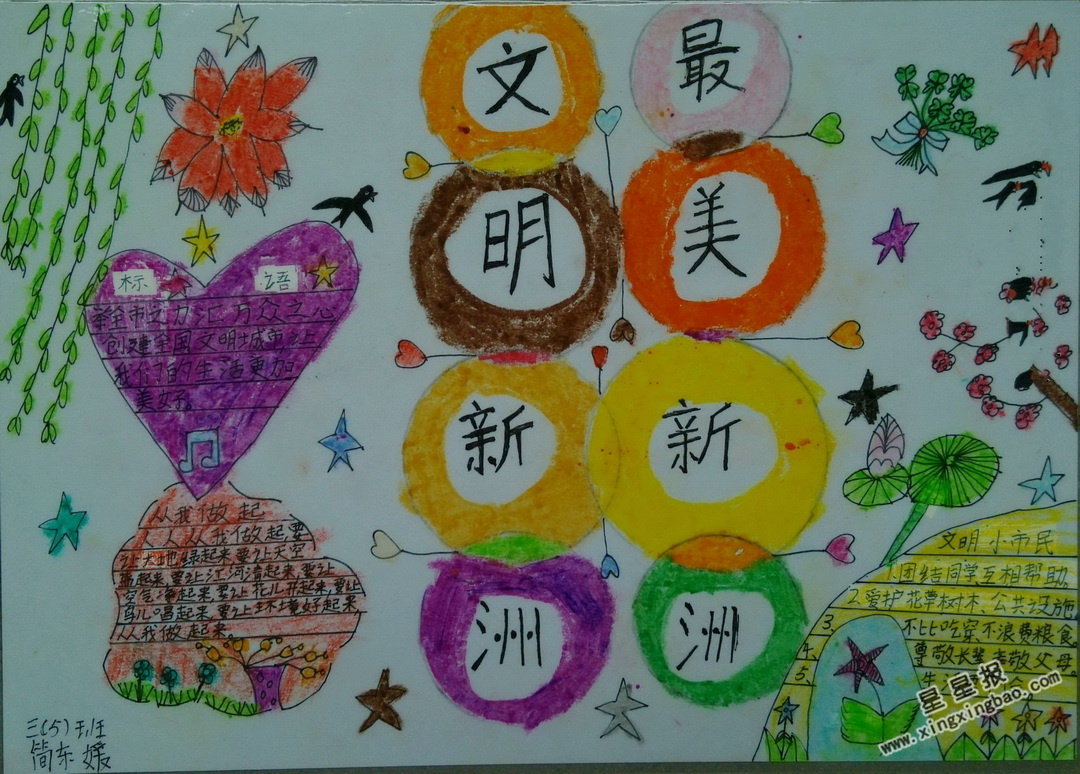 文明新洲
最美新洲
标语
举全市之力汇万众之心
创建全国文明城市让
我们的生活更加
美好。
从我做起
人人从我做起要
让大地绿起来要让天空
蓝起来要让江河清起来要让
空气净起来要让花儿开起来要让
鸟儿唱起来要让环境好起来
从我做起来
文明小市民
1.团结同学互相帮助
2.爱护花草树木、公共设施
3. 不比吃穿不浪费粮食
4. 尊敬长辈孝敬父母
5. 生活
三(5)班
简东媛
星星报
www.xingxingbao.com